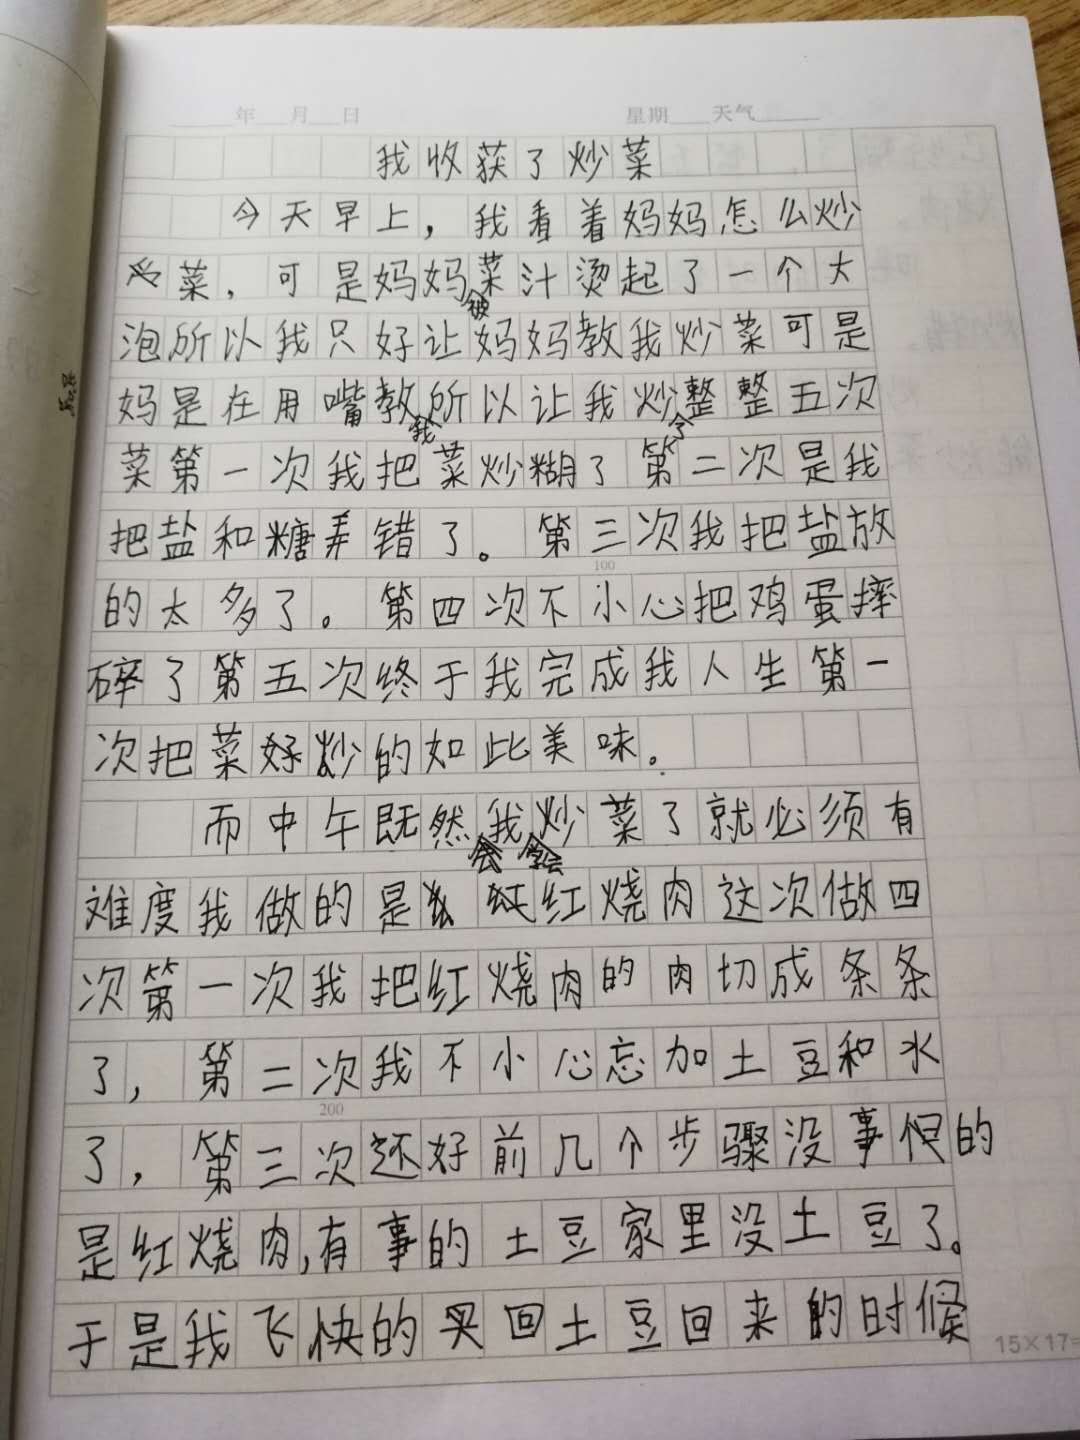 年 月 日 星期 天气
我收获了炒菜
今天早上，我看着妈妈怎么炒
菜，可是妈妈被菜汁烫起了一个大
泡所以我只好让妈妈教我炒菜可是
妈是在用嘴教我所以让我炒了整整五次
菜第一次我把菜炒糊了第二次是我
把盐和糖弄错了。第三次我把盐放
100
的太多了。第四次不小心把鸡蛋摔
碎了第五次终于我完成我人生第一
次把菜好炒的如此美味。
而中午既然我会炒菜了就必须有
难度我做的是红烧肉这次做四
次第一次我把红烧肉的肉切成条条
了，第二次我不小心忘加土豆和水
200
了，第三次还好前几个步骤没事但的
是红烧肉,有事的土豆家里没土豆了。
于是我飞快的买回土豆回来的时候
15×17=